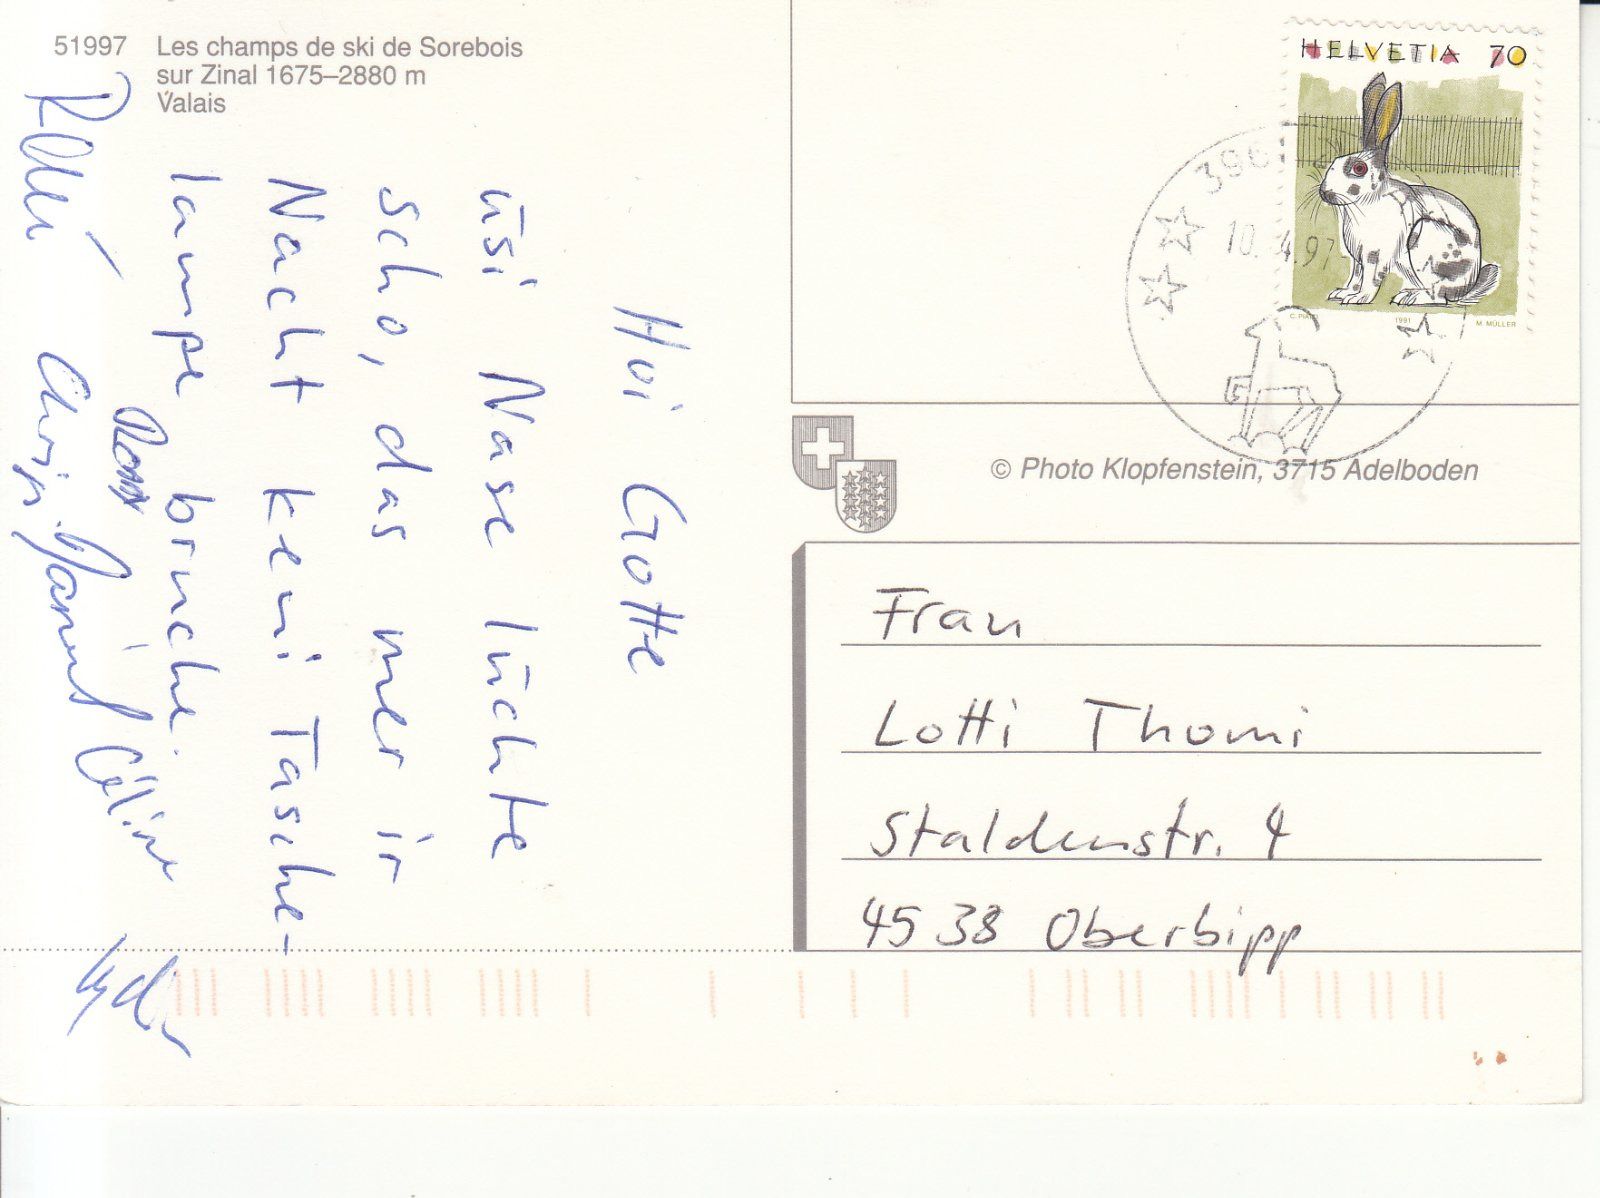 51997 Les champs de ski de Sorebois
sur Zinal 1675–2880 m
Valais
Hoi Gotte
üsi Nase lüchte
scho, das mer ir
Nacht keni Tasche-
lampe bruche.
Céline
Lydia
HELVETIA 70
1991
M. MÜLLER
10. 4.97
© Photo Klopfenstein, 3715 Adelboden
Frau
Lotti Thomi
Staldenstr. 4
4538 Oberbipp